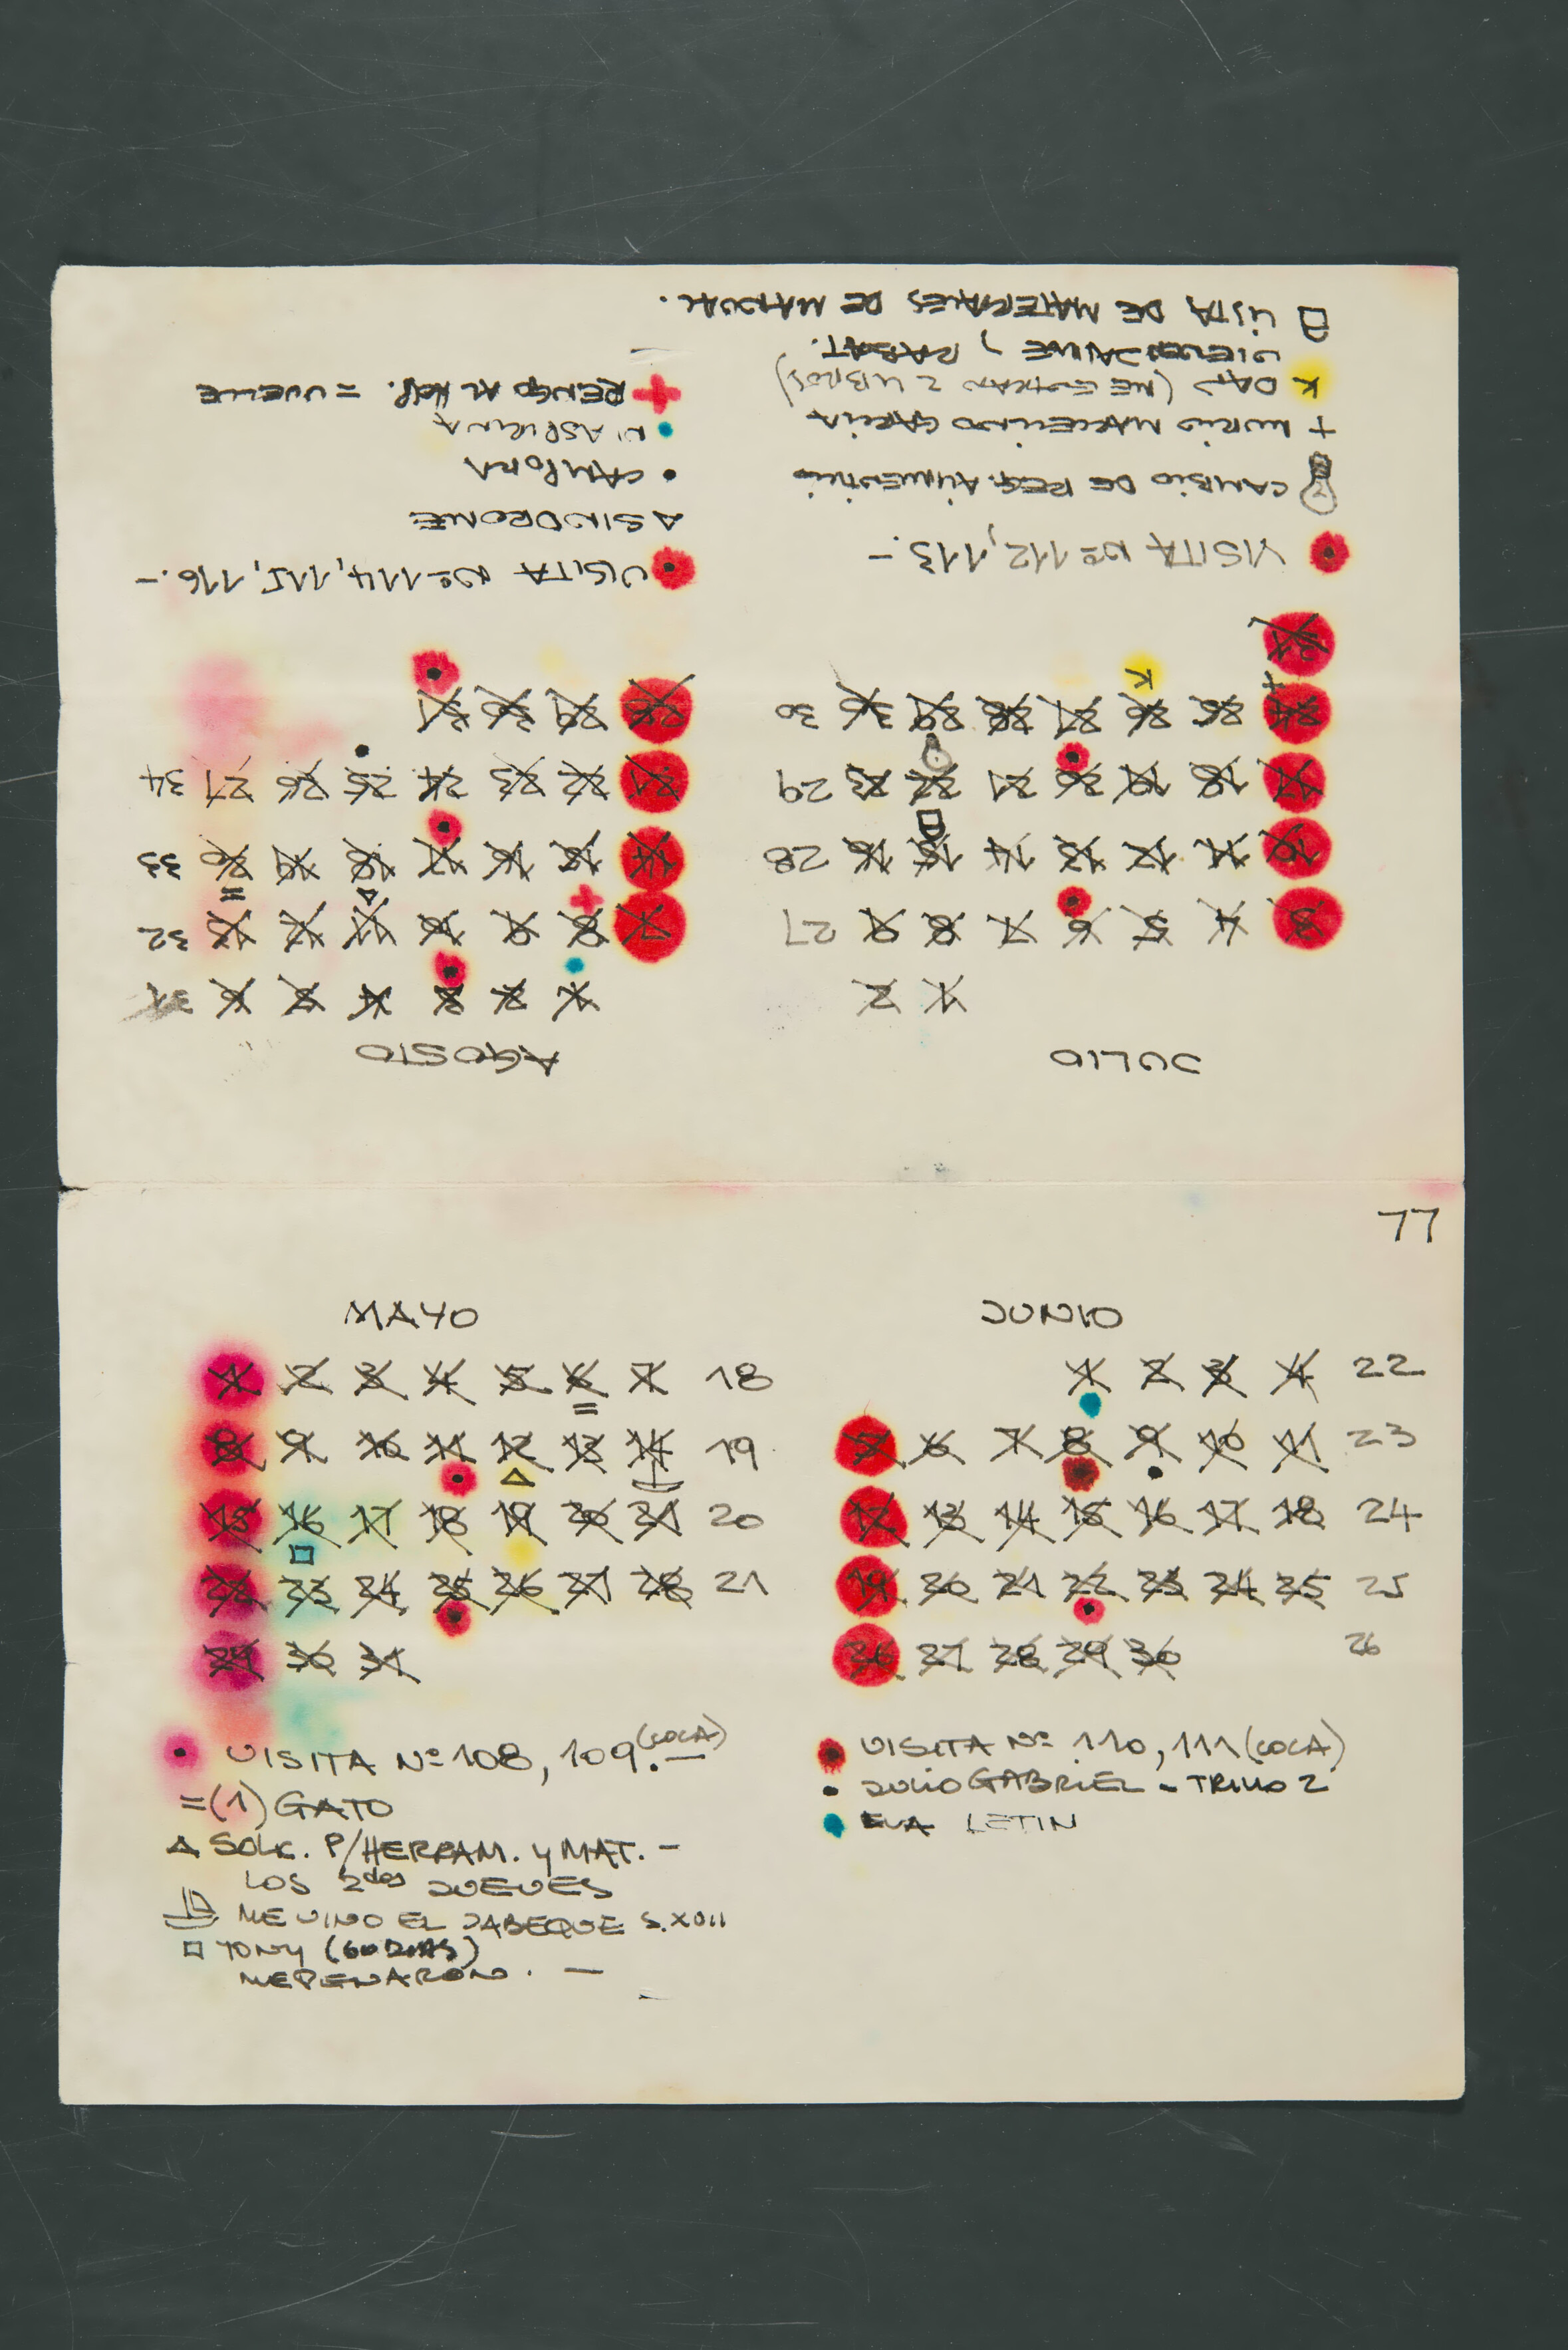 77
MAYO
1 2 3 4 5 6 7 18
=
8 9 10 11 12 13 14 19
15 16 17 18 19 20 21 20
22 23 24 25 26 27 28 21
29 30 31
VISITA Nº 108, 109. (COCA) —
=(1) GATO
SOLIC. P/HERRAM. Y MAT. —
LOS 2dos JUEVES
ME VINO EL JABEQUE S. XVII
TONY (60 DIAS)
ME PENARON. —
JUNIO
1 2 3 4 22
5 6 7 8 9 10 11 23
12 13 14 15 16 17 18 24
19 20 21 22 23 24 25 25
26 27 28 29 30 26
VISITA Nº 110, 111 (COCA)
JULIO GABRIEL - TRILLO 2
EVA LETIN
JULIO
1 2
3 4 5 6 7 8 9 27
10 11 12 13 14 15 16 28
17 18 19 20 21 22 23 29
+ K
24 25 26 27 28 29 30 30
31
VISITA Nº 112, 113.—
CAMBIO DE REG. ALIMENTICIO
+ MURIO MARCELINO GARCIA
K DAD (ME ENTRARON 2 LIBROS)
JAIME, RABAT.
LISTA DE MATERIALES DE MANUAL.
AGOSTO
1 2 3 4 5 6 31
+ =
7 8 9 10 11 12 13 32
14 15 16 17 18 19 20 33
21 22 23 24 25 26 27 34
28 29 30 31
VISITA Nº 114, 115, 116.—
SINDROME
CAMPORA
ASPIRINA
+ RENGO AL HOSP. = VUELVE